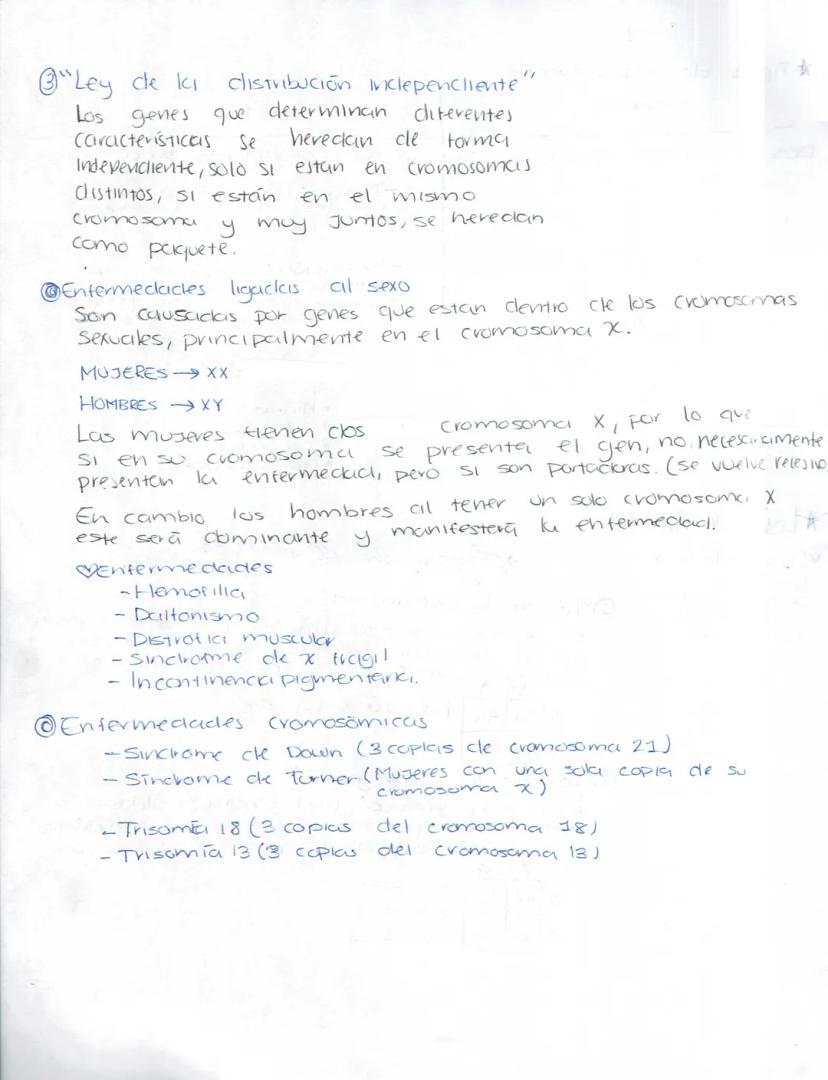 ③ "Ley de la distribución independiente"
Los genes que determinan diferentes
características se heredan de forma
independiente, solo si estan en cromosomas
distintos, si están en el mismo
cromosoma y muy juntos, se heredan
como paquete.
Enfermedades ligadas al sexo
Son causadas por genes que estan dentro de los cromosomas
sexuales, principalmente en el cromosoma X.
MUJERES → XX
HOMBRES → XY
Las mujeres tienen dos cromosoma X, por lo que
si en su cromosoma se presenta el gen, no necesariamente
presentan la enfermedad, pero si son portadoras. (se vuelve
En cambio los hombres al tener un solo cromosoma X
este será dominante y manifesterá la enfermedad.
♡Enfermedades
- Hemofilia
- Daltonismo
- Distrofia muscular
- Sindrome de x fragil
- Incontinencia pigmentaria.
Enfermedades cromosómicas
- Sindrome de Down (3 copias de cromosoma 21)
- Síndrome de Turner (Mujeres con una sola copia de su
cromosoma X)
- Trisomía 18 (3 copias del cromosoma 18)
- Trisomía 13 (3 copias del cromosoma 13)